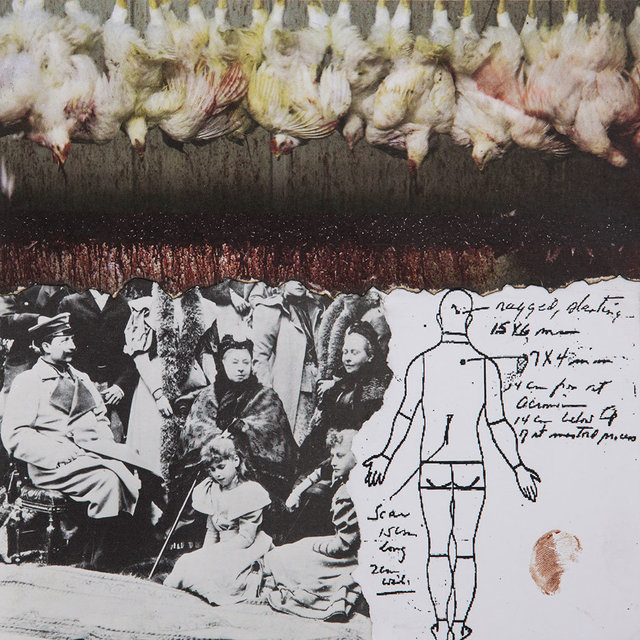 ragged, slanting
15 X 6 mm
7 X 4 mm
14 cm from rt
acromion
14 cm below tip
of rt mastoid process
Scar
15cm
long
2cm
wide